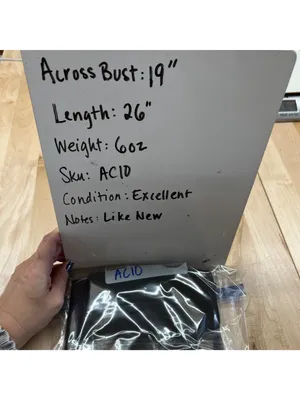 Across Bust: 19"
Length: 26"
Weight: 6oz
Sku: AC10
Condition: Excellent
Notes: Like New
AC10